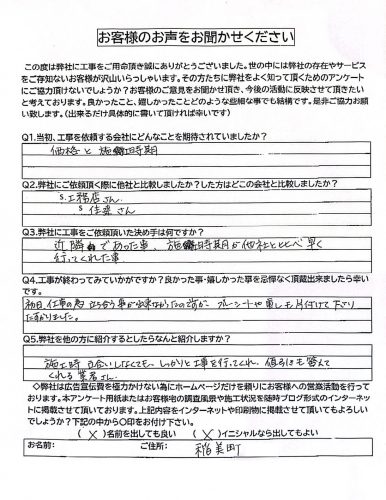 お客様のお声をお聞かせください
この度は弊社に工事をご用命頂き誠にありがとうございました。世の中には弊社の存在やサービス
をご存知ないお客様が沢山いらっしゃいます。その方たちに弊社をよく知って頂くためのアンケート
にご協力頂けないでしょうか？お客様のご意見をお聞かせ頂き、今後の活動に反映させて頂きたい
と考えております。良かったこと、嬉しかったことどのような些細な事でも結構です。是非ご協力お願
い致します。(出来るだけ具体的に書いて頂ければ幸いです)
Q1.当初、工事を依頼する会社にどんなことを期待されていましたか？
価格と施工時期
Q2.弊社にご依頼頂く際に他社と比較しましたか？した方はどこの会社と比較しましたか？
S.工務店さん
S 住建さん
Q3.弊社に工事をご依頼頂いた決め手は何ですか？
近隣であった事、施工時期が他社とくらべ早く
行ってくれた事
Q4.工事が終わってみていかがですか？良かった事・嬉しかった事を忌憚なく頂戴出来ましたら幸い
です。
初日、仕事の為立ち合う事が出来なかったのですが、ブルーシートや車しも片付けて下さり
たすかりました。
Q5.弊社を他の方に紹介するとしたらなんと紹介しますか？
施工時立合いしなくても、しっかりと工事を行ってくれ、値引にも答えて
くれる業者さん。
◇弊社は広告宣伝費を極力かけない為にホームページだけを頼りにお客様への営業活動を行って
おります。本アンケート用紙またはお客様宅の調査風景や施工状況を随時ブログ形式のインターネッ
トに掲載させて頂いております。上記内容をインターネットや印刷物に掲載させて頂いてもよろしい
でしょうか？下記の中から〇印をお付け下さい。
(X)名前を出しても良い (X)イニシャルなら出してもよい
お名前: ご住所: 稲美町